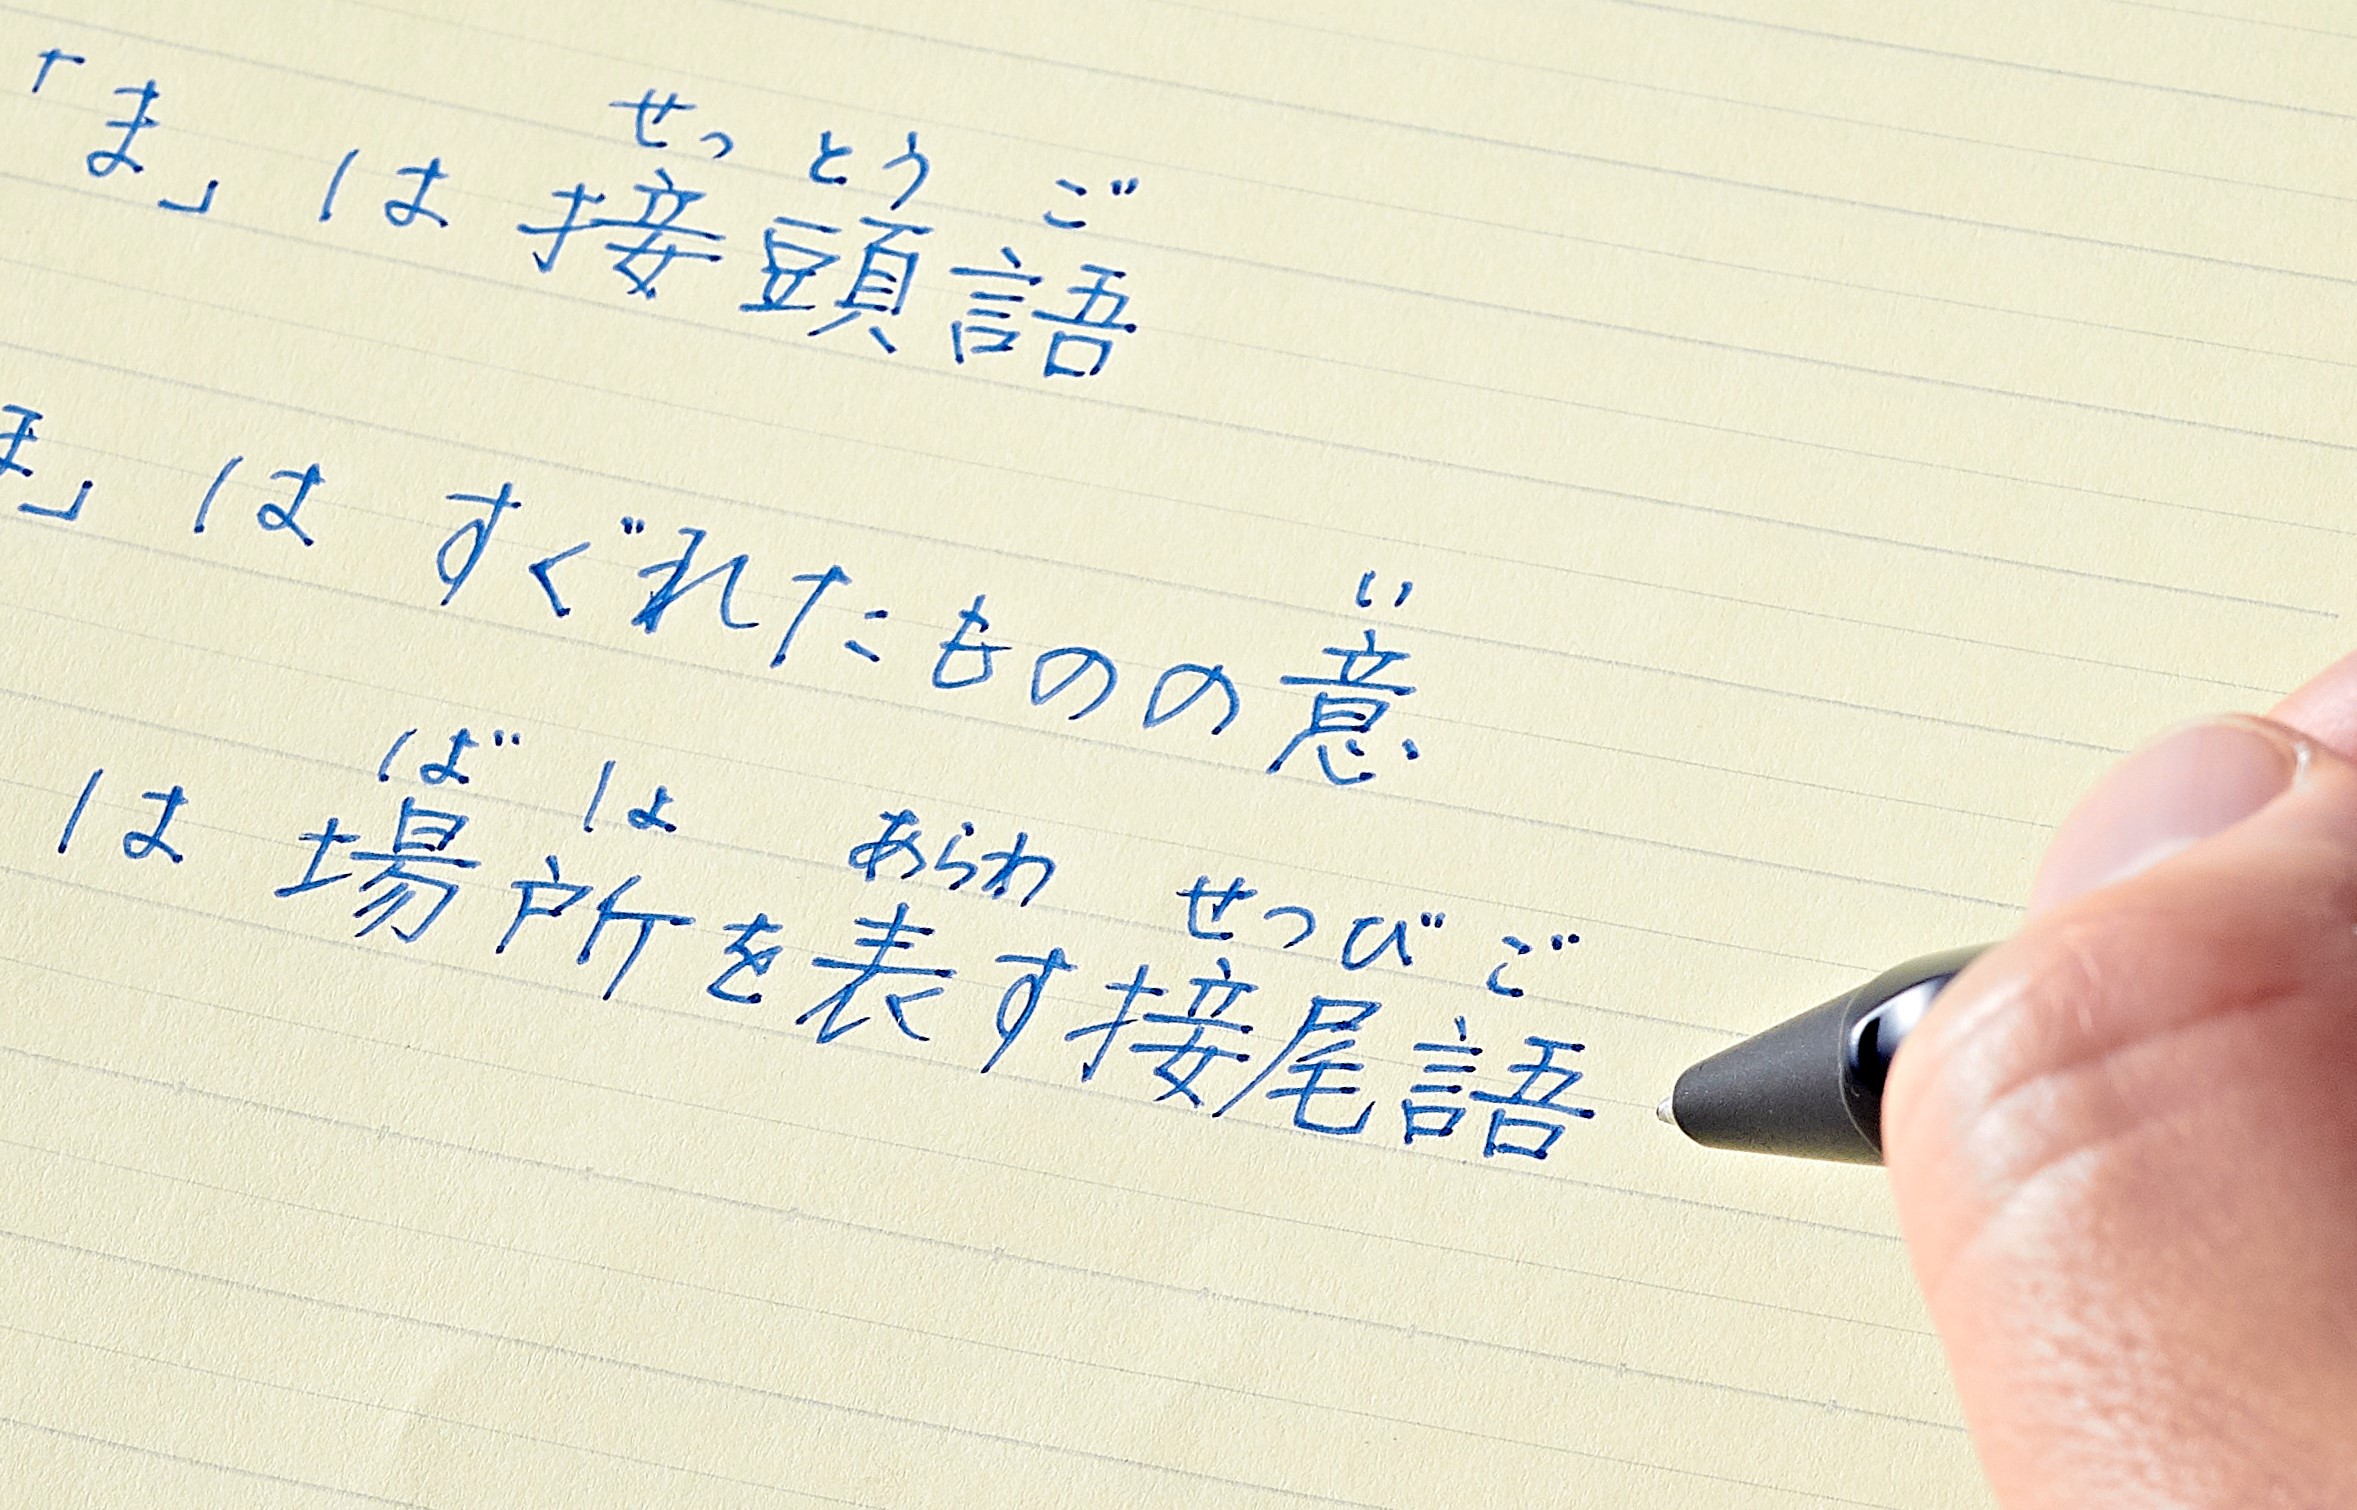 せっとうご
「ま」は接頭語
い
」はすぐれたものの意
ばしょ あらわ せつびご
は場所を表す接尾語